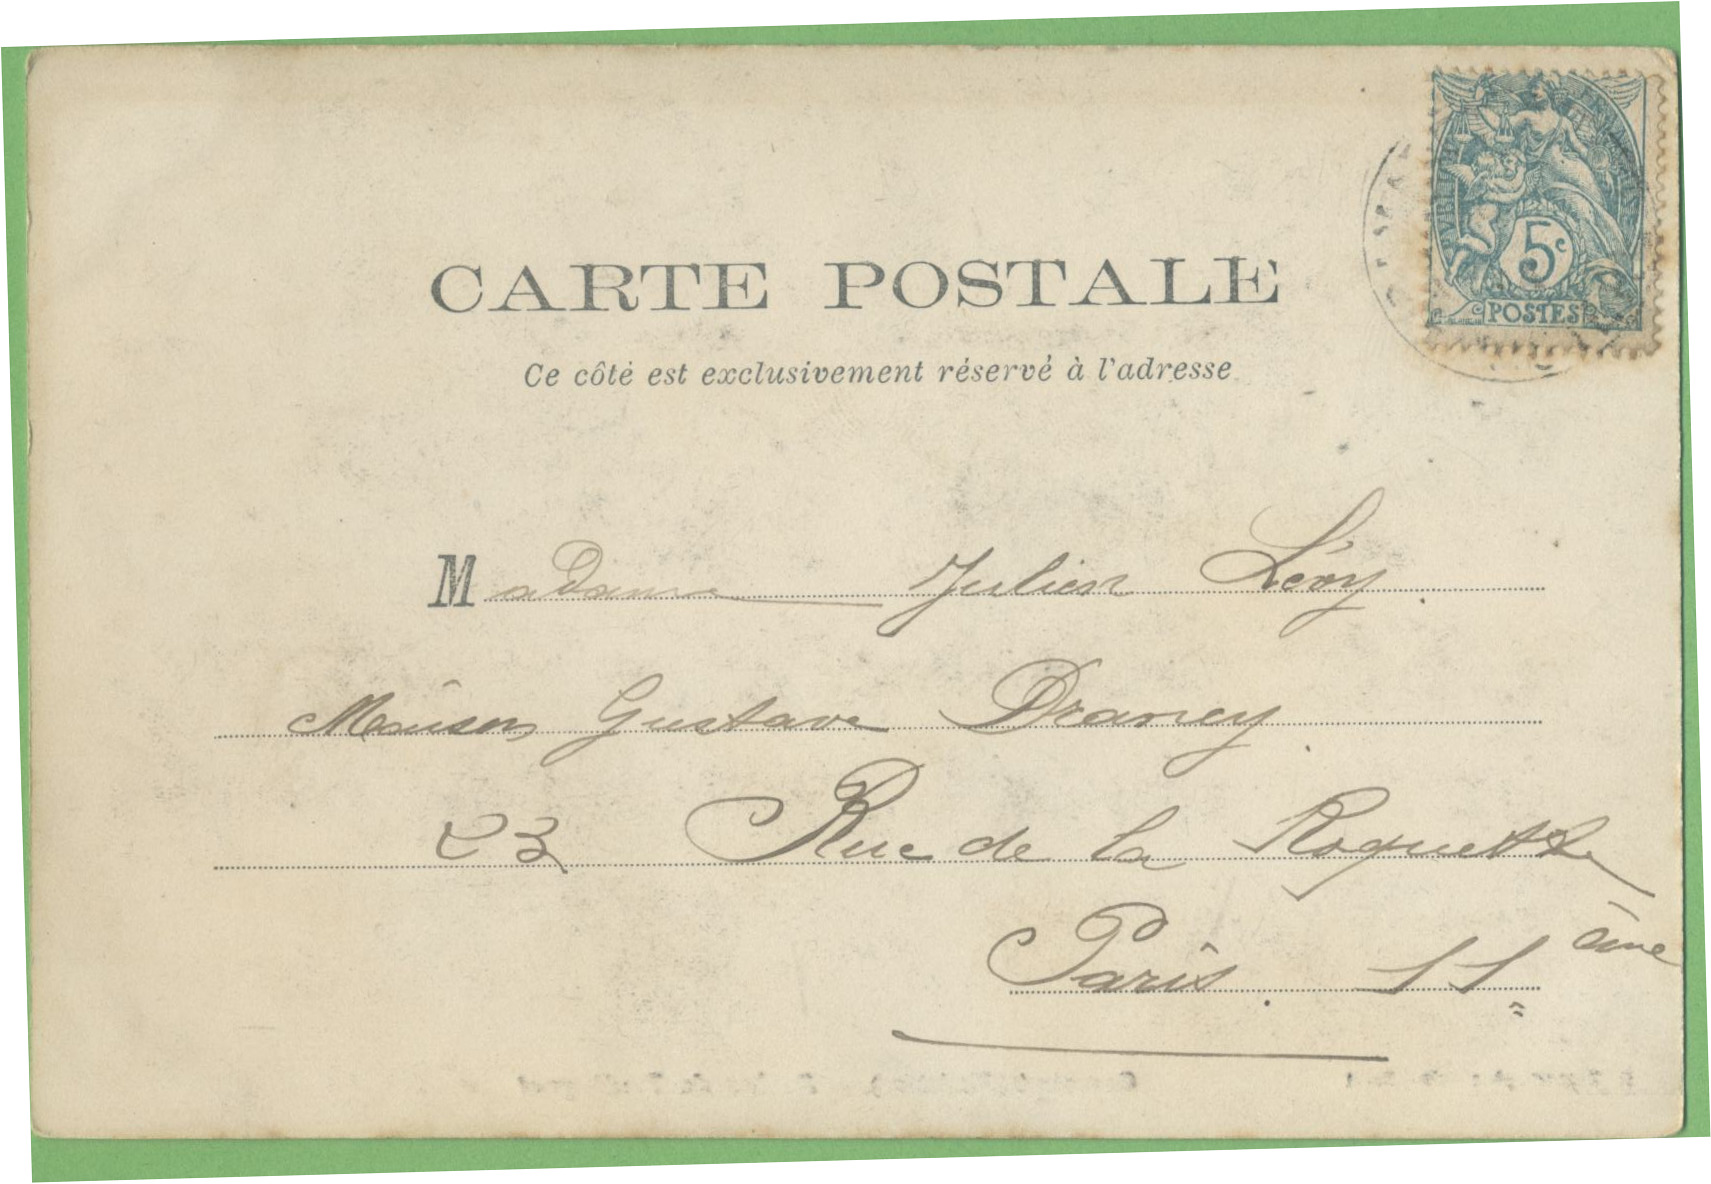 5c
POSTES
CARTE POSTALE
Ce côté est exclusivement réservé à l'adresse
Madame Julien Lévy.
Maison Gustave Drancy.
23 Rue de la Roquette
Paris. 11ème